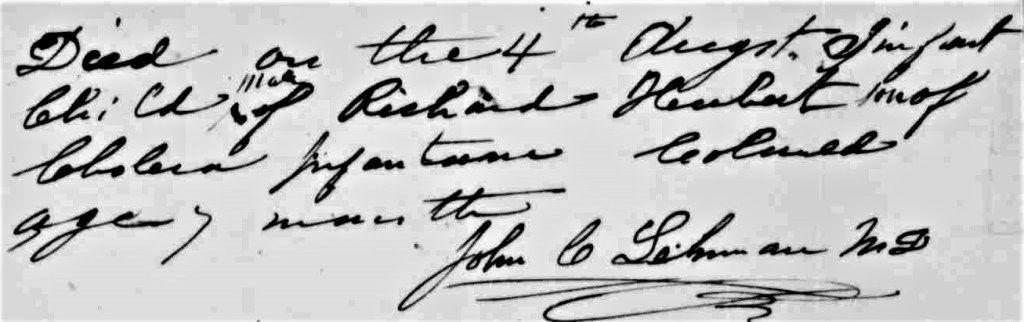 Died on the 4th Augst. Infant
Child male of Richard Herbert son of
Cholera Infantum Colored
age 7 months
John C Lehman MD